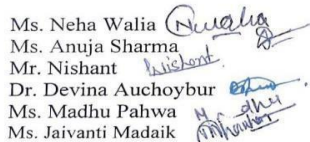 Ms. Neha Walia Nwalia
Ms. Anuja Sharma
Mr. Nishant Nishant
Dr. Devina Auchoybur
Ms. Madhu Pahwa Madhu
Ms. Jaivanti Madaik